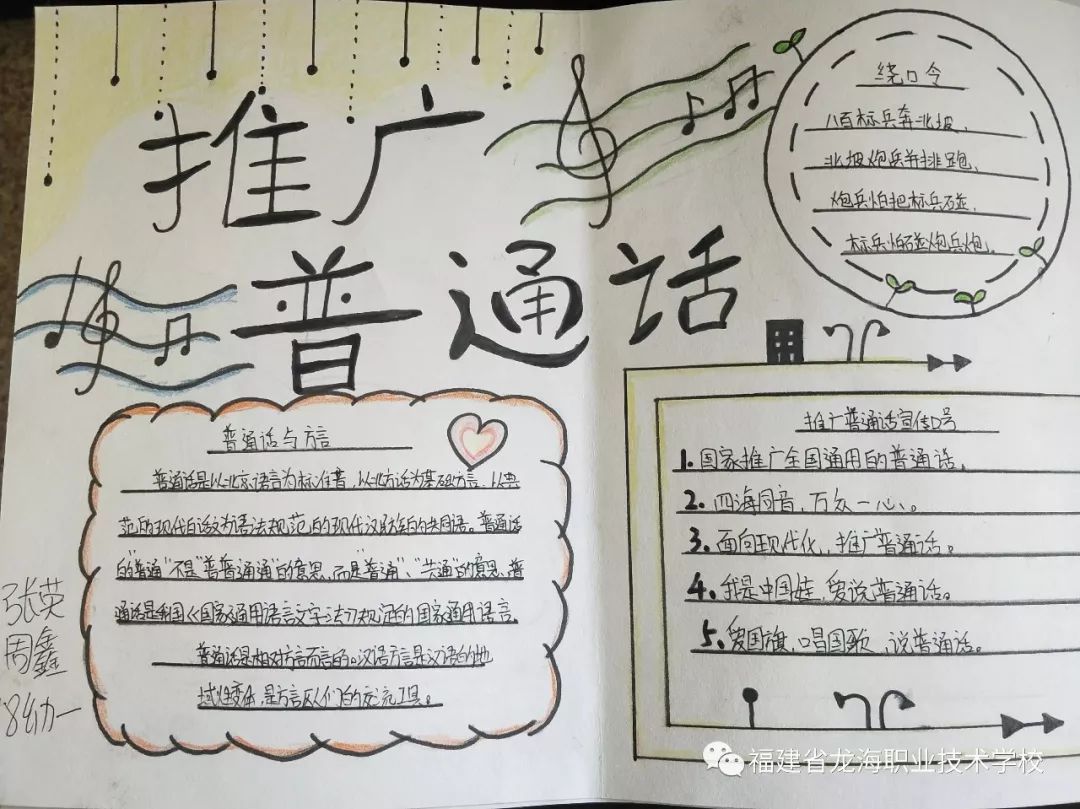 推广
普通话
绕口令
八百标兵奔北坡、
北坡炮兵并排跑、
炮兵怕把标兵碰、
标兵怕碰炮兵炮、
普通话与方言
普通话是以北京语言为标准普，以北方话为基础方言、以典
范的现代白话文为语法规范的现代汉民族的共同语。普通话
的"普通"不是"普普通通"的意思，而是"普通"、"共通"的意思、普
通话是我国《国家通用语言文字法》规定的国家通用语言。
普通话是相对方言而言的。汉语方言是汉语的地
域性变体，是方言区人们的交流工具。
推广普通话宣传口号
1.国家推广全国通用的普通话。
2.四海同音，万众一心、。
3.面向现代化，推广普通话。
4.我是中国娃，爱说普通话。
5.爱国旗，唱国歌，说普通话。
张英
周鑫
18幼一
福建省龙海职业技术学校